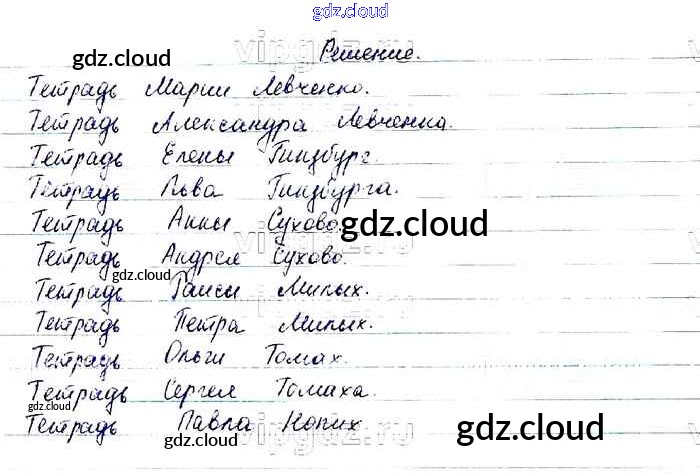 gdz.cloud
vipgdz.ru
gdz.cloud
Решение.
Тетрадь Марии Левченко.
Тетрадь Александра Левченка.
Тетрадь Елены Гинзбург.
Тетрадь Льва Гинзбурга.
Тетрадь Анны Сухово.
gdz.cloud
vipgdz.ru
Тетрадь Андрея Сухово.
gdz.cloud
Тетрадь Раисы Милых.
Тетрадь Петра Милых.
Тетрадь Ольги Томах.
Тетрадь Сергея Томаха.
gdz.cloud
Тетрадь Павла Копих
gdz.cloud
vipgdz.ru
gdz.cloud